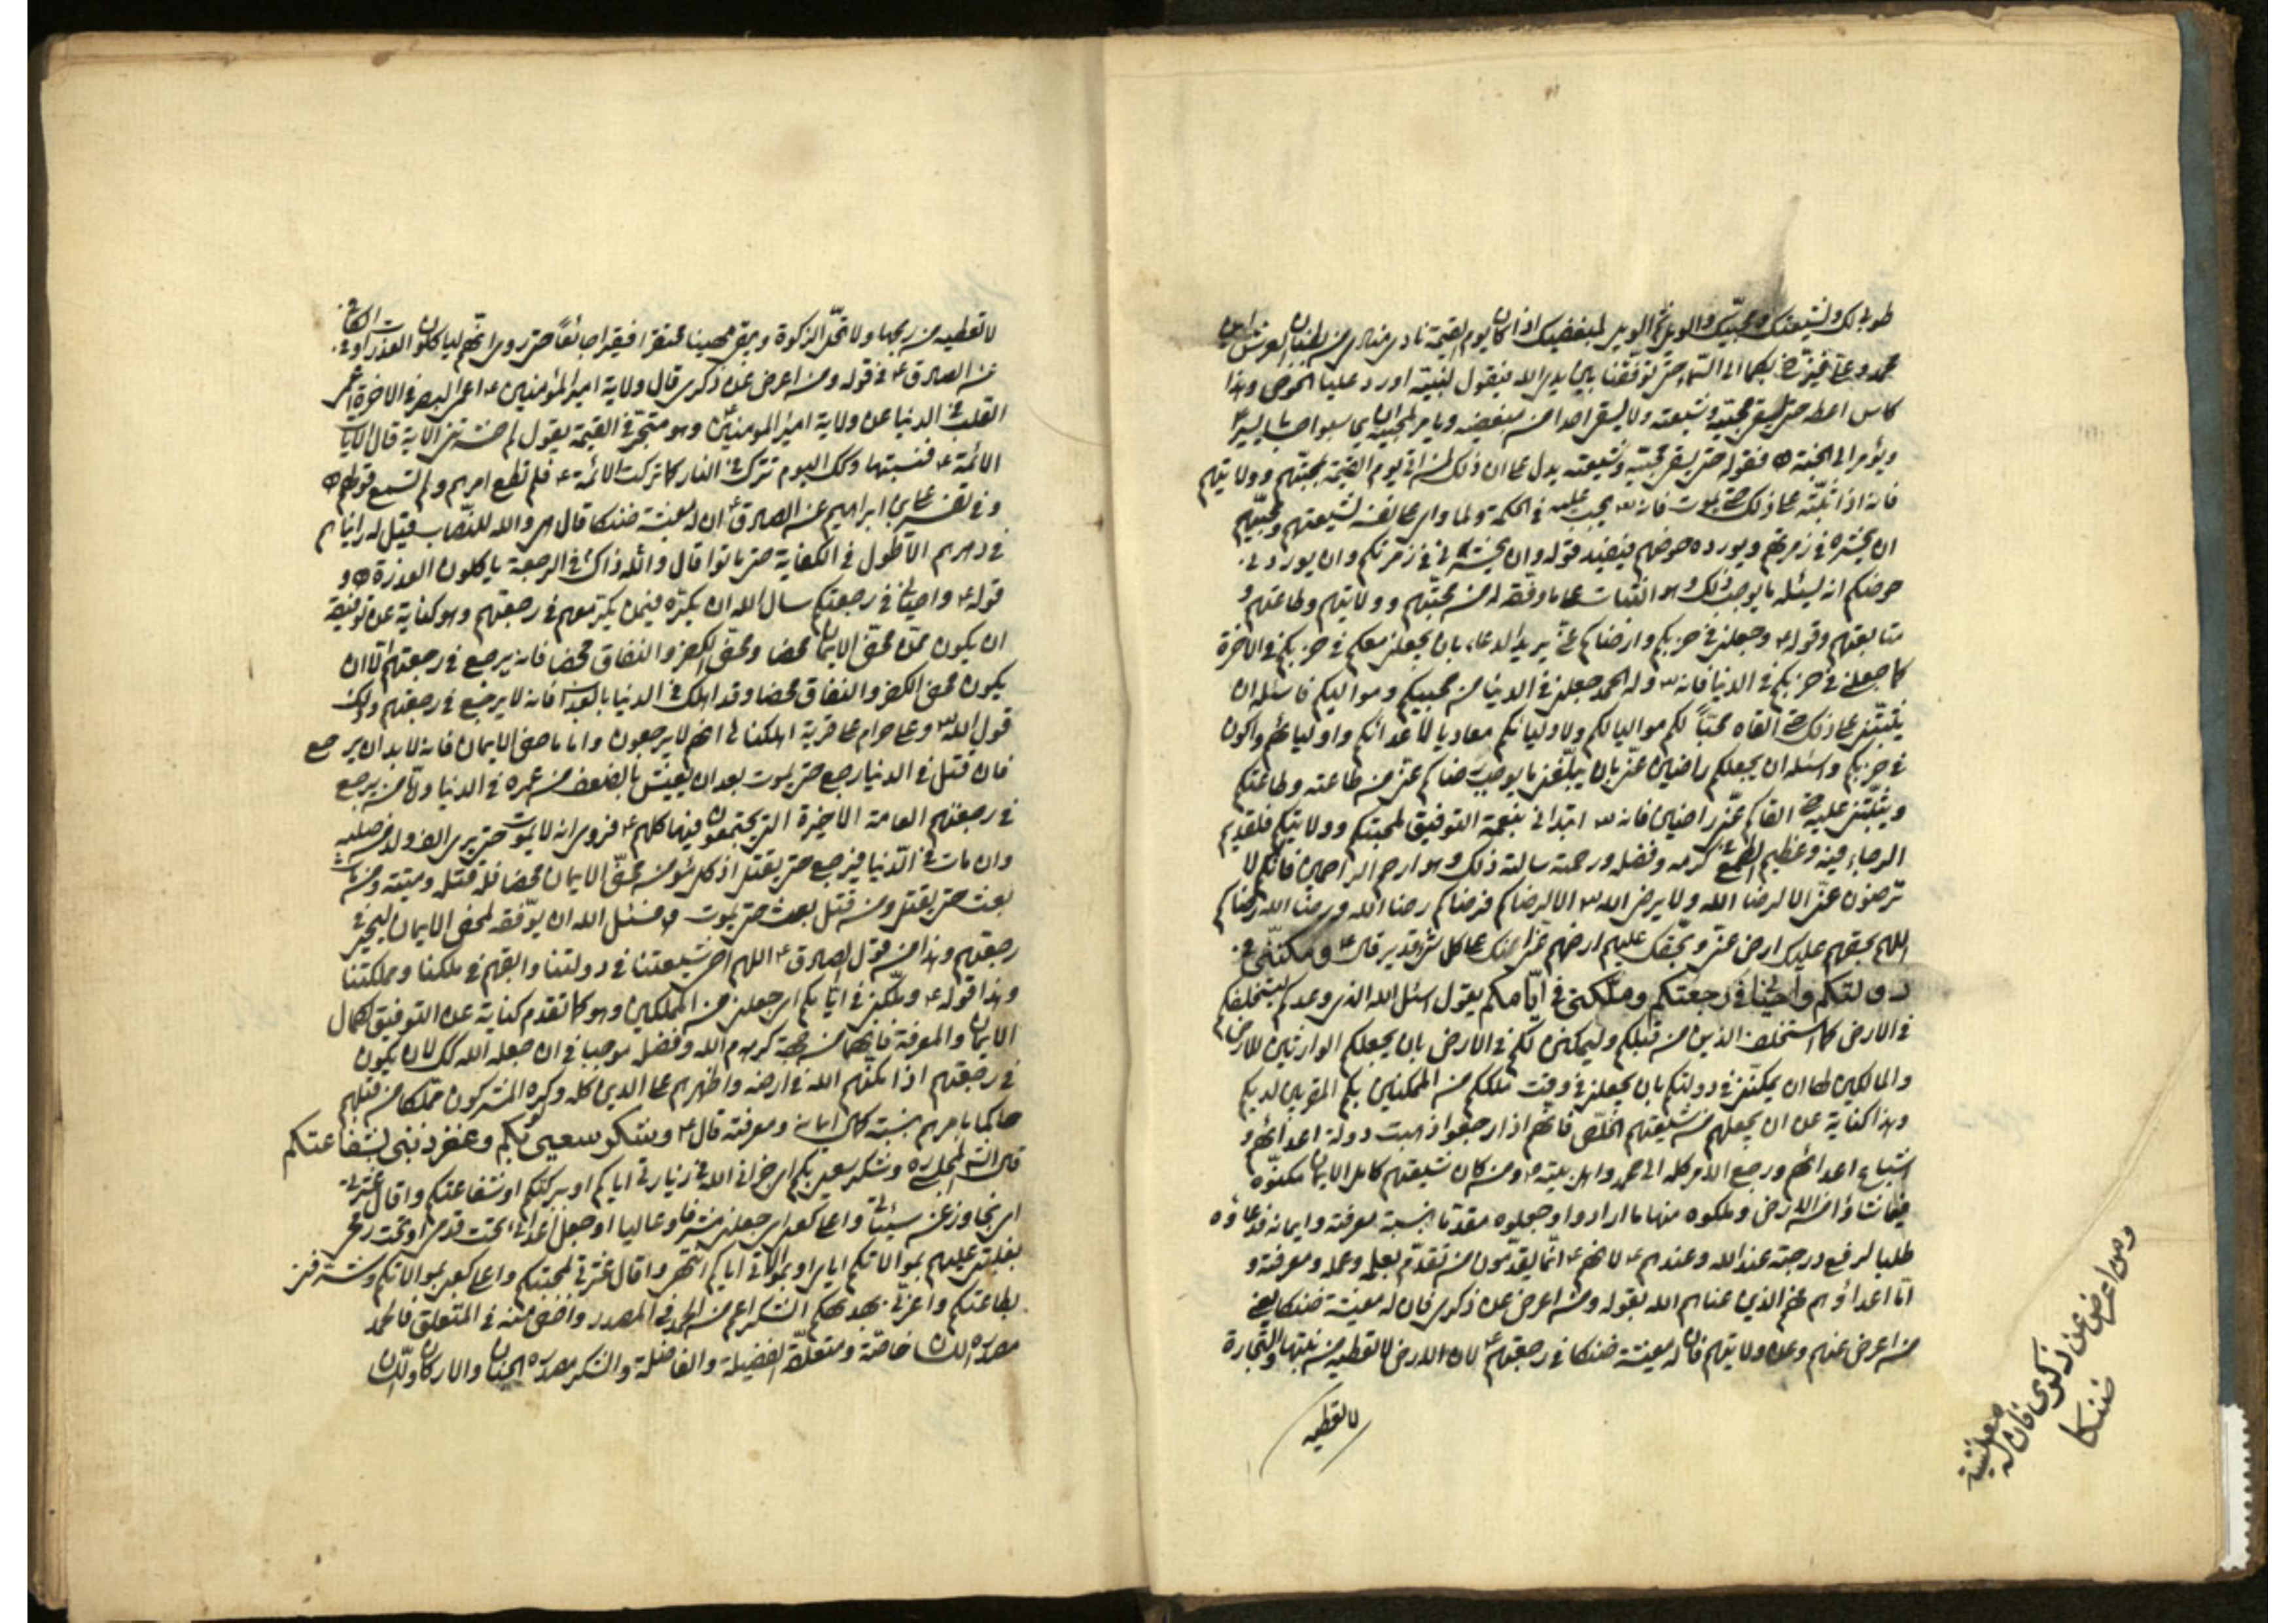 طوبى لك ولشيعتك ومحبيك والويل ثم الويل لمبغضيك اذا كان يوم القيمة نادى مناد من بطنان العرش اين
محمد وعلى فيزخ بكما الى السماء حتى توقفنا بين يدى الله فيقول لنبيه اورد عليا الحوض وهذا
كاس اعطه حتى يسقى محبيه وشيعته ولا يسقى احدا من مبغضيه ويامر لمحبيه ان يحاسبوا حسابا يسيرا
ويؤمر الى الجنة فقوله حتى يسقى محبيه وشيعته يدل على ان ذلك لمن اتى يوم القيمة بمحبتهم وولايتهم
فانه اذا ثبته على ذلك حتى يموت فانه يجب عليه فى الحكمة ولما وأى على نفسه لشيعتهم ومحبيهم
ان يحشره فى زمرتهم ويورده حوضهم فيفيد قوله وان يحشرنى فى زمرتكم وان يوردنى
حوضكم انه يسئله ما يوجب ذلك وهو الثبات على ما وفقه له من محبتهم وولايتهم وطاعتهم و
متابعتهم وقوله وجعلنى فى حزبكم وارضاكم عنى يريد الدعاء بان يجعلنى معكم فى حزبكم فى الاخرة
كما جعلنى فى حزبكم فى الدنيا فانه وله الحمد جعلنى فى الدنيا من محبيكم ومواليكم فاسئله ان
يثبتنى على ذلك حتى القاه محبا لكم مواليا لكم ولاوليائكم معاديا لاعدائكم واوليائهم واكون
فى حزبكم واسئله ان يجعلكم راضين عنى بان يبلغنى ما يوجب رضاكم عنى من طاعته وطاعتكم
ويثبتنى عليه حتى القاكم عنى راضين فانه ابتدانى بنعمة التوفيق لمحبتكم وولايتكم فلقديم
الرجاء فيه وعظيم الطمع فى كرمه وفضله ورحمته سالته ذلك وهو ارحم الراحمين فانكم لا
ترضون عنى الا لرضا الله ولا يرضى الله الا لرضاكم فرضاكم رضا الله ورضا الله رضاكم
اللهم بحقهم عليك ارض عنى وبحقك عليهم ارضهم عنى انك على كل شئ قدير قال ومكننى فى
دولتكم واحيانى فى رجعتكم وملكنى فى ايامكم يقول اسئل الله الذى وعدكم ليستخلفكم
فى الارض كما استخلف الذين من قبلكم وليمكنن لكم فى الارض بان يجعلكم الوارثين للارض
والمالكين لها ان يمكننى فى دولتكم بان يجعلنى فى وقت تملككم من الممكنين بكم المقربين لديكم
وهذا كناية عن ان يجعلهم من شيعتهم الخلص فانهم اذا رجعوا ذهبت دولة اعدائهم و
اشياع اعدائهم ورجع الامر كله الى محمد واهل بيته ومن كان شيعتهم كامل الايمان مكنوه
فيما شاؤا من الارض وملكوه منها ما ارادوا وجعلوه مقدما بنسبة معرفته وايمانه فدعاؤه
طلبا لرفع درجته عند الله وعندهم لانهم انما يقدمون من تقدم بعلمه وعمله ومعرفته و
اما اعداؤهم فهم الذين عناهم الله بقوله ومن اعرض عن ذكرى فان له معيشة ضنكا يعنى
من اعرض عنهم وعن ولايتهم فان له معيشة ضنكا فى رجعتهم لان الارض لا تعطيه من نبتها والتجارة
لا تعطيه
ومن اعرض عن ذكرى فان له معيشة
ضنكا
لا تعطيه من ربحها ولا تحل الزكوة ويبقى مهينا محتقرا فقيرا جائعا حتى روى انهم لياكلون العذرات وفى الكافى
عن الصادق فى قوله ومن اعرض عن ذكرى قال ولاية امير المؤمنين اعمى البصر فى الاخرة اعمى
القلب فى الدنيا عن ولاية امير المؤمنين وهو متحير فى القيمة يقول لم حشرتنى الاية قال الايات
الائمة فنسيتها وكذلك اليوم تترك فى النار كما تركت الائمة فلم تطع امرهم ولم تسمع قولهم
وفى تفسير على بن ابراهيم عن الصادق ان له معيشة ضنكا قال هى والله للنصاب قيل له رايناهم
فى دهرهم الاطول فى الكفاية حتى ماتوا قال والله ذاك فى الرجعة ياكلون العذرة و
قوله واحيانى فى رجعتكم سال الله ان يكره فيمن يكر معهم فى رجعتهم وهو كناية عن توفيقه
ان يكون ممن محض الايمان محضا ومحض الكفر والنفاق محضا فانه يرجع فى رجعتهم الا ان
يكون محض الكفر والنفاق محضا وقد اهلك فى الدنيا بالعذاب فانه لا يرجع فى رجعتهم وذلك
قول الله وعلى حرام على قرية اهلكناها انهم لا يرجعون واما ماحض الايمان فانه لا بد ان يرجع
فان قتل فى الدنيا رجع حتى يموت بعد ان يعيش بالضعف من عمره فى الدنيا واما من يرجع
فى رجعتهم العامة الاخيرة التى يجتمعون فيها كلهم فروى انه لا يموت حتى يرى الف ولد من صلبه
وان مات فى الدنيا فيرجع حتى يقتل اذ كل مؤمن محض الايمان محضا فله قتلة وميتة ومن مات
بعث حتى يقتل ومن قتل بعث حتى يموت فاسئل الله ان يوفقه لمحض الايمان ليحيى فى
رجعتهم وهذا من قول الصادق اللهم احى شيعتنا فى دولتنا وابقهم فى ملكنا ومملكتنا
وهذا قوله وملكنى فى ايامكم اى جعلنى من المملكين وهو كما تقدم كناية عن التوفيق لكمال
الايمان والمعرفة فانهما من جهة كرم الله وفضله موجبا فى ان جعله الله كذلك لان يكون
فى رجعتهم اذا مكنهم الله فى ارضه واظهرهم على الدين كله وكره المشركون مملكا من قبلهم
حاكما بامرهم بنسبة كمال ايمانه ومعرفته قال وشكر سعيى بكم وغفر ذنبى بشفاعتكم
قال الشارح المجلسى ره وشكر سعيى بكم اى جزانى الله فى زيارتى اياكم او ببركتكم او شفاعتكم واقال عثرتى
اى تجاوز عن سيئاتى واعلى كعبى اى جعلنى مشرفا وعاليا او جعل اعدائى تحت قدمى او تحت رمحى
بغلبتى عليهم بموالاتكم اياى او بموالاتى اياكم انتهى واقال عثرتى لمحبتكم واعلى كعبى بموالاتكم وشرفنى
بطاعتكم واعزنى بهديكم الشكر اعم من الحمد فى المصدر واخص منه فى المتعلق فالحمد
مصدره اللسان خاصة ومتعلقه الفضيلة والفاضلة والشكر مصدره الجنان والاركان واللسان